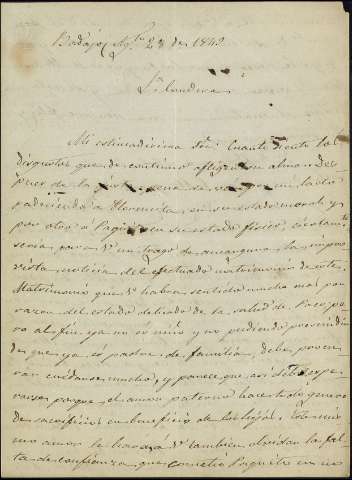 Badajoz Ag.to 28 de 1842
Sra Landera
Mi estimadisima Sra: Cuanto siento los
disgustos que de continuo afligen su alma: Des
pues de la justa pena de ver por un lado
padeciendo a Florencita en su estado moral y
por otro a Paquito en su estado fisico, ciertamte
seria para V. un trago de amargura la impre
vista noticia del efectuado matrimonio de este.
Matrimonio que V. habrá sentido mucho mas por
razon del estado delicado de la salud de Paco; pe
ro al fin ya no es niño y no pudiendo prescindir
de que ya es padre de familia, debe procu
rar cuidarse mucho, y parece que asi debe espe
rarse porque el amor paterno hace todo genero
de sacrificios en beneficio de los hijos. Este mis
mo amor le hará á V. tambien olvidar la fal
ta de confianza que cometió Paquito en no